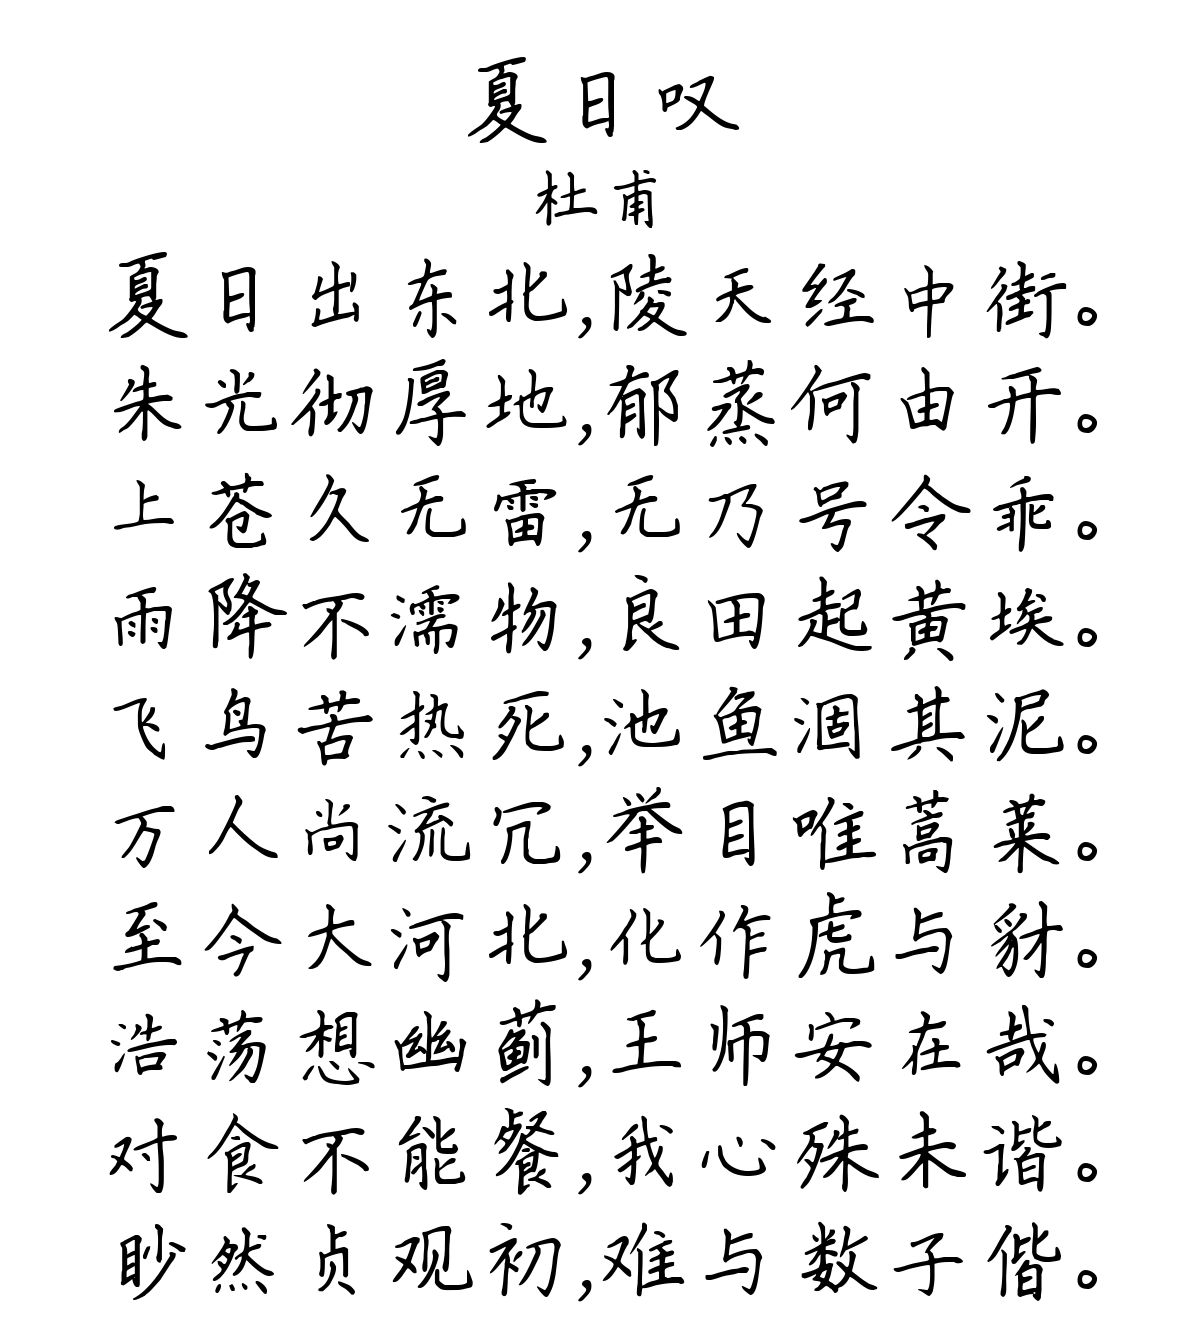 夏日叹
杜甫
夏日出东北,陵天经中街。
朱光彻厚地,郁蒸何由开。
上苍久无雷,无乃号令乖。
雨降不濡物,良田起黄埃。
飞鸟苦热死,池鱼涸其泥。
万人尚流冗,举目唯蒿莱。
至今大河北,化作虎与豺。
浩荡想幽蓟,王师安在哉。
对食不能餐,我心殊未谐。
眇然贞观初,难与数子偕。